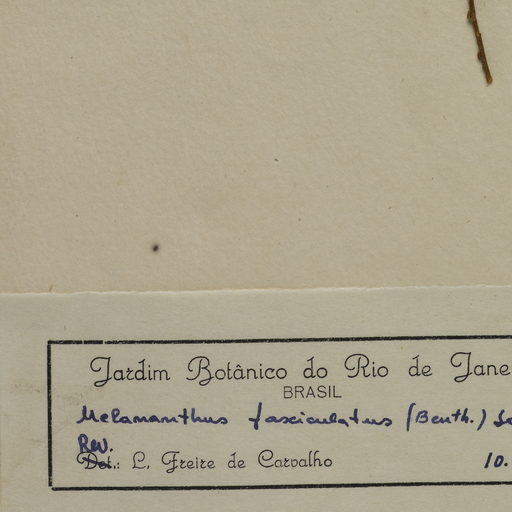 Jardim Botânico do Rio de Jane
BRASIL
Melananthus fasciculatus (Benth.) So
Rev.
Det.: L. Freire de Carvalho 10.